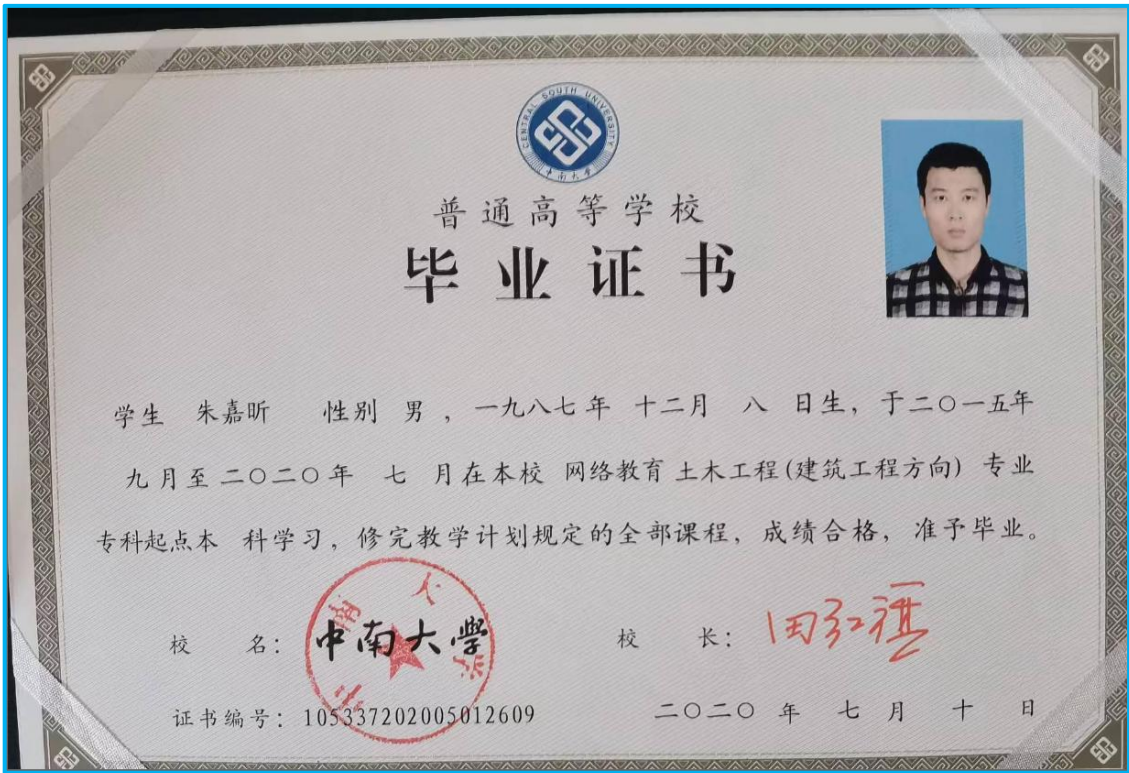 CENTRAL SOUTH UNIVERSITY
中南大学
普通高等学校
毕业证书
学生 朱嘉昕 性别 男 ，一九八七年 十二月 八 日生，于二〇一五年
九月至二〇二〇年 七 月在本校 网络教育 土木工程(建筑工程方向) 专业
专科起点本 科学习，修完教学计划规定的全部课程，成绩合格，准予毕业。
校 名：中南大學
中南大学
校 长：田红旗
证书编号：105337202005012609
二〇二〇 年 七 月 十 日